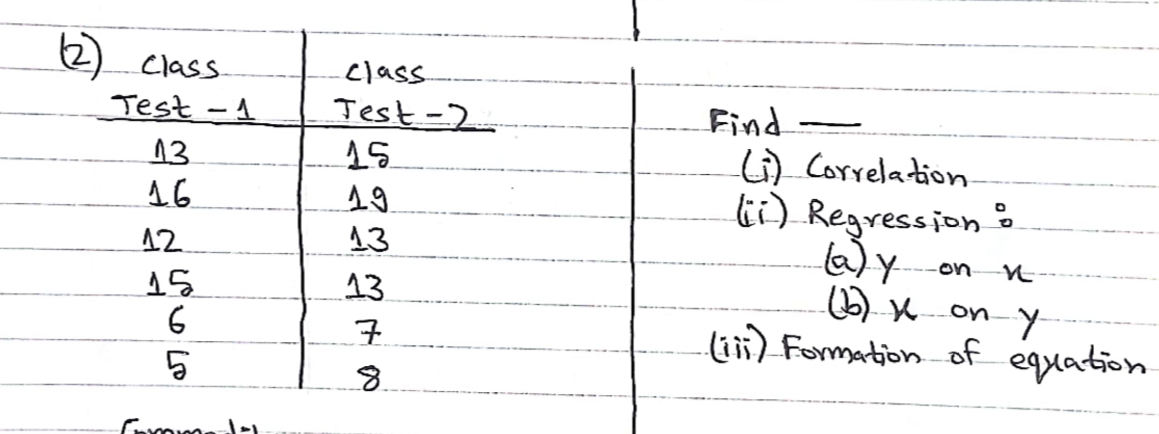 (2) Class Test - 1 | Class Test - 2
13 | 15
16 | 19
12 | 13
15 | 13
6 | 7
5 | 8
Find —
(i) Correlation
(ii) Regression :
(a) y on x
(b) x on y
(iii) Formation of equation